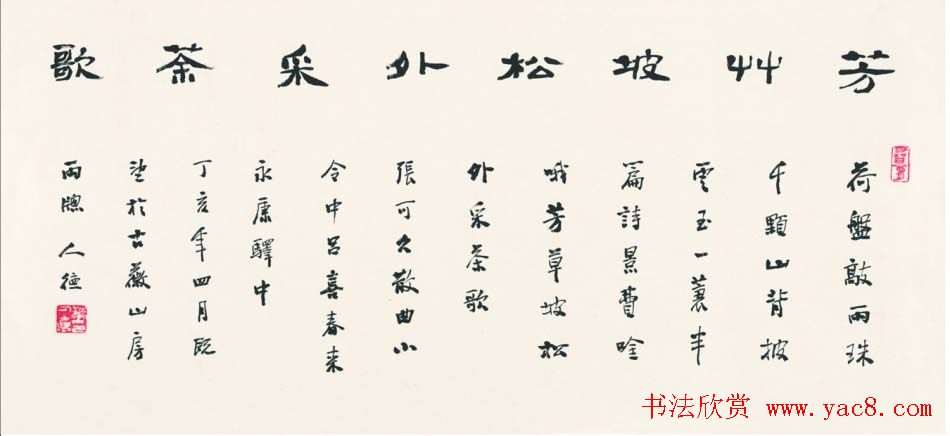 芳艸坡松外采茶歌
荷盤敲雨珠
千顆山背披
雲玉一蓑半
篇詩景費唫
哦芳草坡松
外采茶歌
張可久散曲小
令中呂喜春来
永康驛中
丁亥年四月既
望於古薇山房
雨牕人德
书法欣赏 www.yac8.com